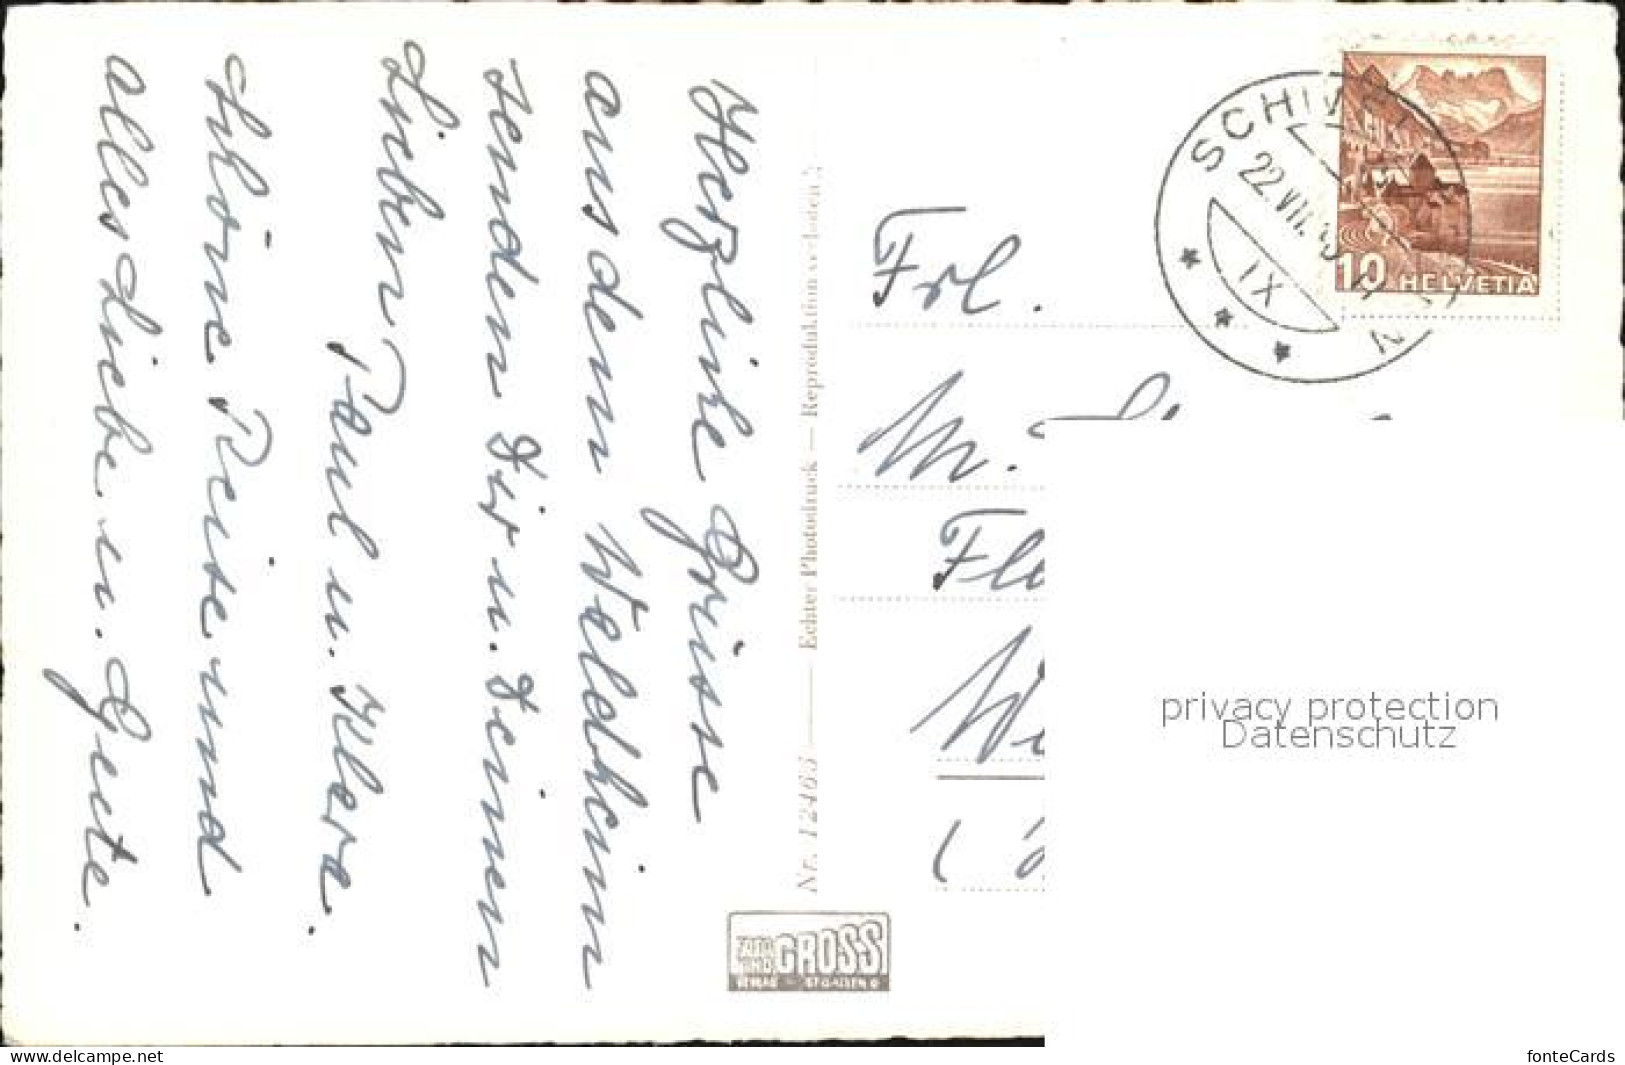 Herzliche Grüsse
aus dem Waldheim
senden Dir u. Deinen
Lieben
Paul u. Klara.
Schöne Reise und
alles Liebe u. Gute.
Nr. 12465 Echter Photodruck — Reproduktion verboten!
FOTO GROSS
VERLAG — ST GALLEN
Frl.
M.
SCHI
22.VII.
IX
N
10 HELVETIA
privacy protection
Datenschutz
www.delcampe.net
fonteCards